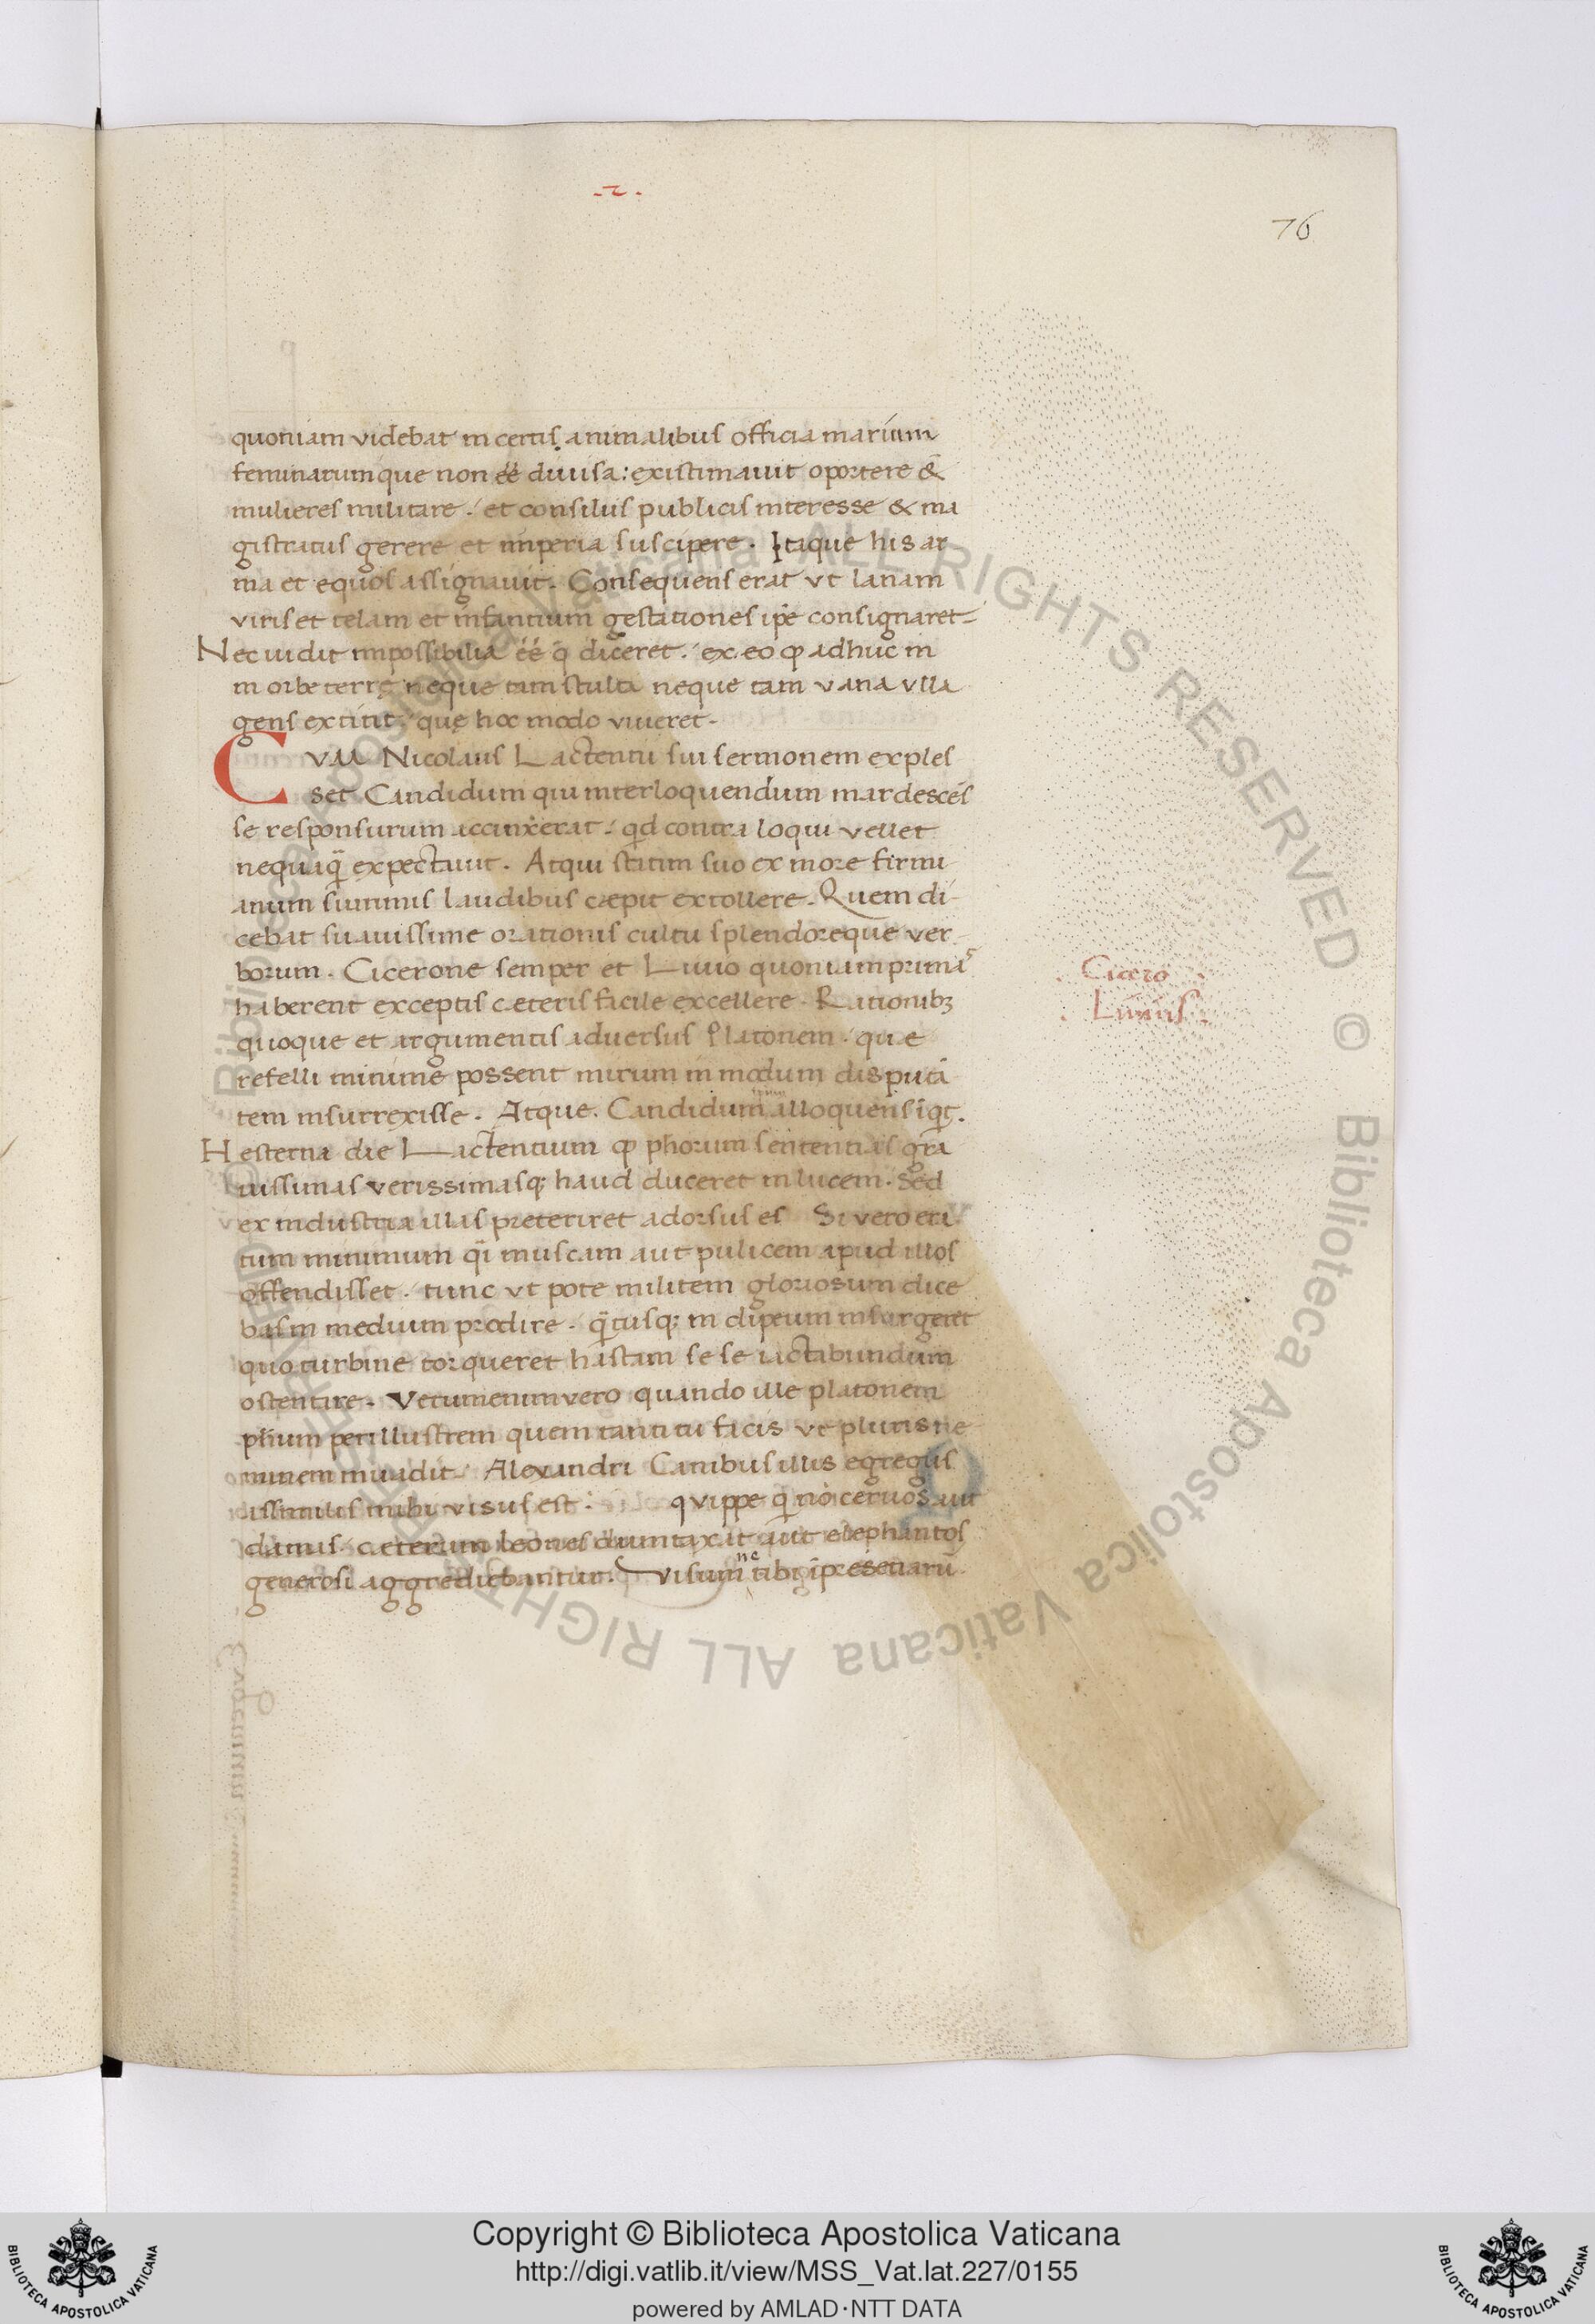 .2.
76
quoniam videbat in certis animalibus officia marium
feminarumque non éé diuisa: existimauit oportere &
mulieres militare. et consiliis publicis interesse & ma
gistratus gerere et imperia suscipere. Itaque his ar
ma et equos assignauit. Consequens erat vt lanam
viris et telam et infantium gestationes ipe consignaret
Nec uidit impossibilia éé q̄ diceret. ex eo ꝙ adhuc in
in orbe terrę neque tam stulta neque tam vana vlla
gens extitit. quę hoc modo viueret.
CVM Nicolaus Lactentii sui sermonem exples
set Candidum qui interloquendum inardescēs
se responsurum accinxerat. qd contra loqui vellet
nequaq̄ expectauit. Atqui statim suo ex more firmi
anum summis laudibus cæpit extollere. Quem di-
cebat suauissime orationis cultu splendoreque ver
borum. Cicerone semper et Liuio quoniam primas
haberent exceptis cæteris facile excellere. Rationibꝫ
quoque et argumentis aduersus Platonem. quæ
refelli minime possent mirum in modum disputā
tem insurrexisse. Atque. Candidum alloquens iq̄t.
Cicero
Liuius
Hesterna die Lactentium ꝙ phorum sententias gra
uissimas verissimasq; haud duceret in lucem. Sed
ex industria illas preteriret adorsus es Si vero eri
tum minimum q̄i muscam aut pulicem apud illos
offendisset. tunc vt pote militem gloriosum dice
bas in medium prodire. q̄tusq; in clipeum insurgeret
quo turbine torqueret hastam se se iactabundum
ostentare. Verumenimvero quando ille platonem
phium perillustrem quem tanti tu facis vt pluris ne
minem inuadit. Alexandri Canibus illis egregiis
dissimilis mihi visus est: qvippe q̄ nō ceruos aut
damas. cæterum leones dumtaxat aut elephantos
generosi aggrediebantur. Visumne tibi īpresētiarū